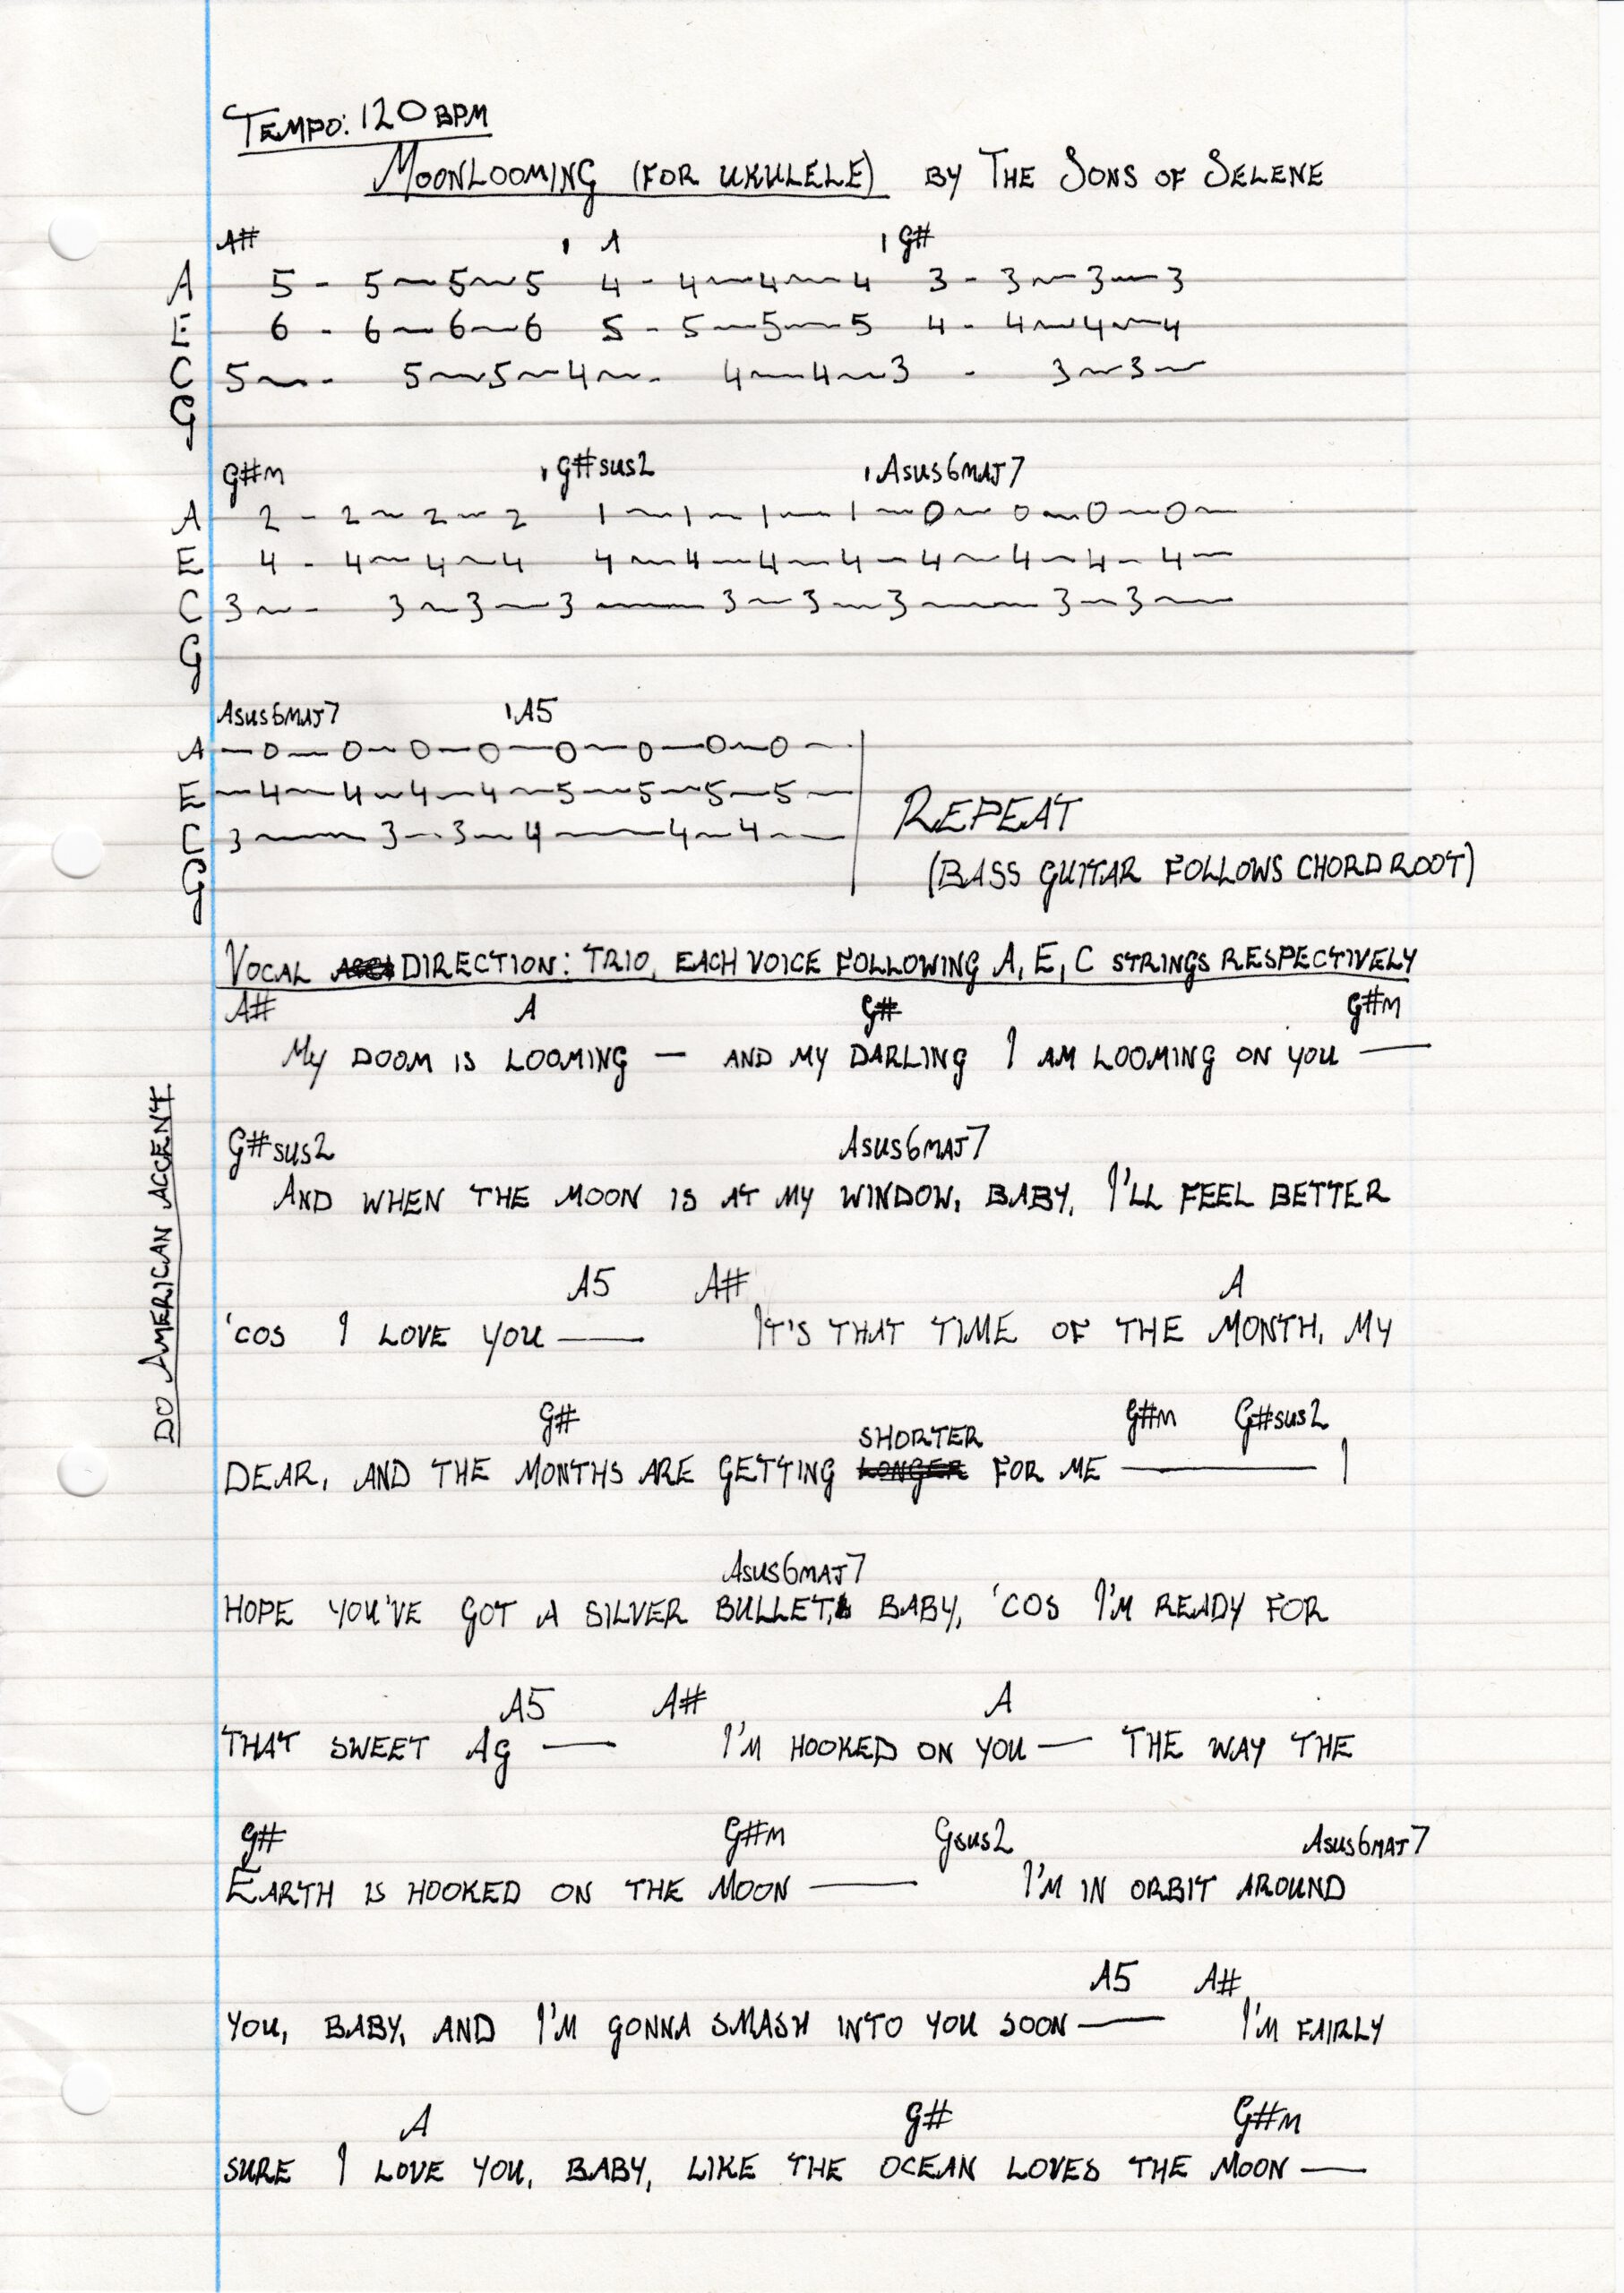 TEMPO: 120 BPM
MOONLOOMING (FOR UKULELE) BY THE SONS OF SELENE
A# ' A ' G#
A 5 - 5~5~5 4 - 4~4~4 3 - 3~3~3
E 6 - 6~6~6 5 - 5~5~5 4 - 4~4~4
C 5~- 5~5~4~- 4~4~3 - 3~3~
G
G#m 'G#sus2 'Asus6maj7
A 2 - 2~2~2 1~1~1~1~0~0~0~0~
E 4 - 4~4~4 4~4~4~4~4~4~4~4~
C 3~- 3~3~3~3~3~3~3~3~
G
Asus6maj7 'A5
A ~0~0~0~0~0~0~0~0~
E ~4~4~4~4~5~5~5~5~
C 3~3~3~4~4~4~
G
REPEAT
(BASS GUITAR FOLLOWS CHORD ROOT)
VOCAL DIRECTION: TRIO, EACH VOICE FOLLOWING A, E, C STRINGS RESPECTIVELY
A# A G# G#m
MY DOOM IS LOOMING — AND MY DARLING I AM LOOMING ON YOU —
DO AMERICAN ACCENT
G#sus2 Asus6maj7
AND WHEN THE MOON IS AT MY WINDOW, BABY, I'LL FEEL BETTER
A5 A# A
'COS I LOVE YOU — IT'S THAT TIME OF THE MONTH, MY
G# G#m G#sus2
SHORTER
DEAR, AND THE MONTHS ARE GETTING LONGER FOR ME — |
Asus6maj7
HOPE YOU'VE GOT A SILVER BULLET, BABY, 'COS I'M READY FOR
A5 A# A
THAT SWEET Ag — I'M HOOKED ON YOU — THE WAY THE
G# G#m Gsus2 Asus6maj7
EARTH IS HOOKED ON THE MOON — I'M IN ORBIT AROUND
A5 A#
YOU, BABY, AND I'M GONNA SMASH INTO YOU SOON — I'M FAIRLY
A G# G#m
SURE I LOVE YOU, BABY, LIKE THE OCEAN LOVES THE MOON —